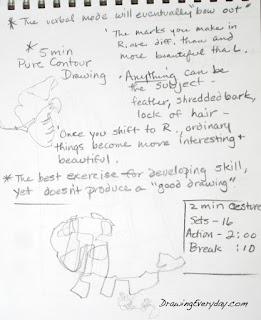 * The verbal mode will eventually bow out -
'The marks you make in
R, are diff. than and
more beautiful tha L.
* 5 min
Pure Contour
Drawing
• Anything can be
the subject -
feather, shredded bark,
lack of hair -
'Once you shift to R., ordinary
things become more interesting +
beautiful.
* The best exercise for developing skill,
yet doesn't produce a "good drawing"
2 min Gesture
Sets - 16
Action - 2:00
Break :10
DrawingEveryday.com